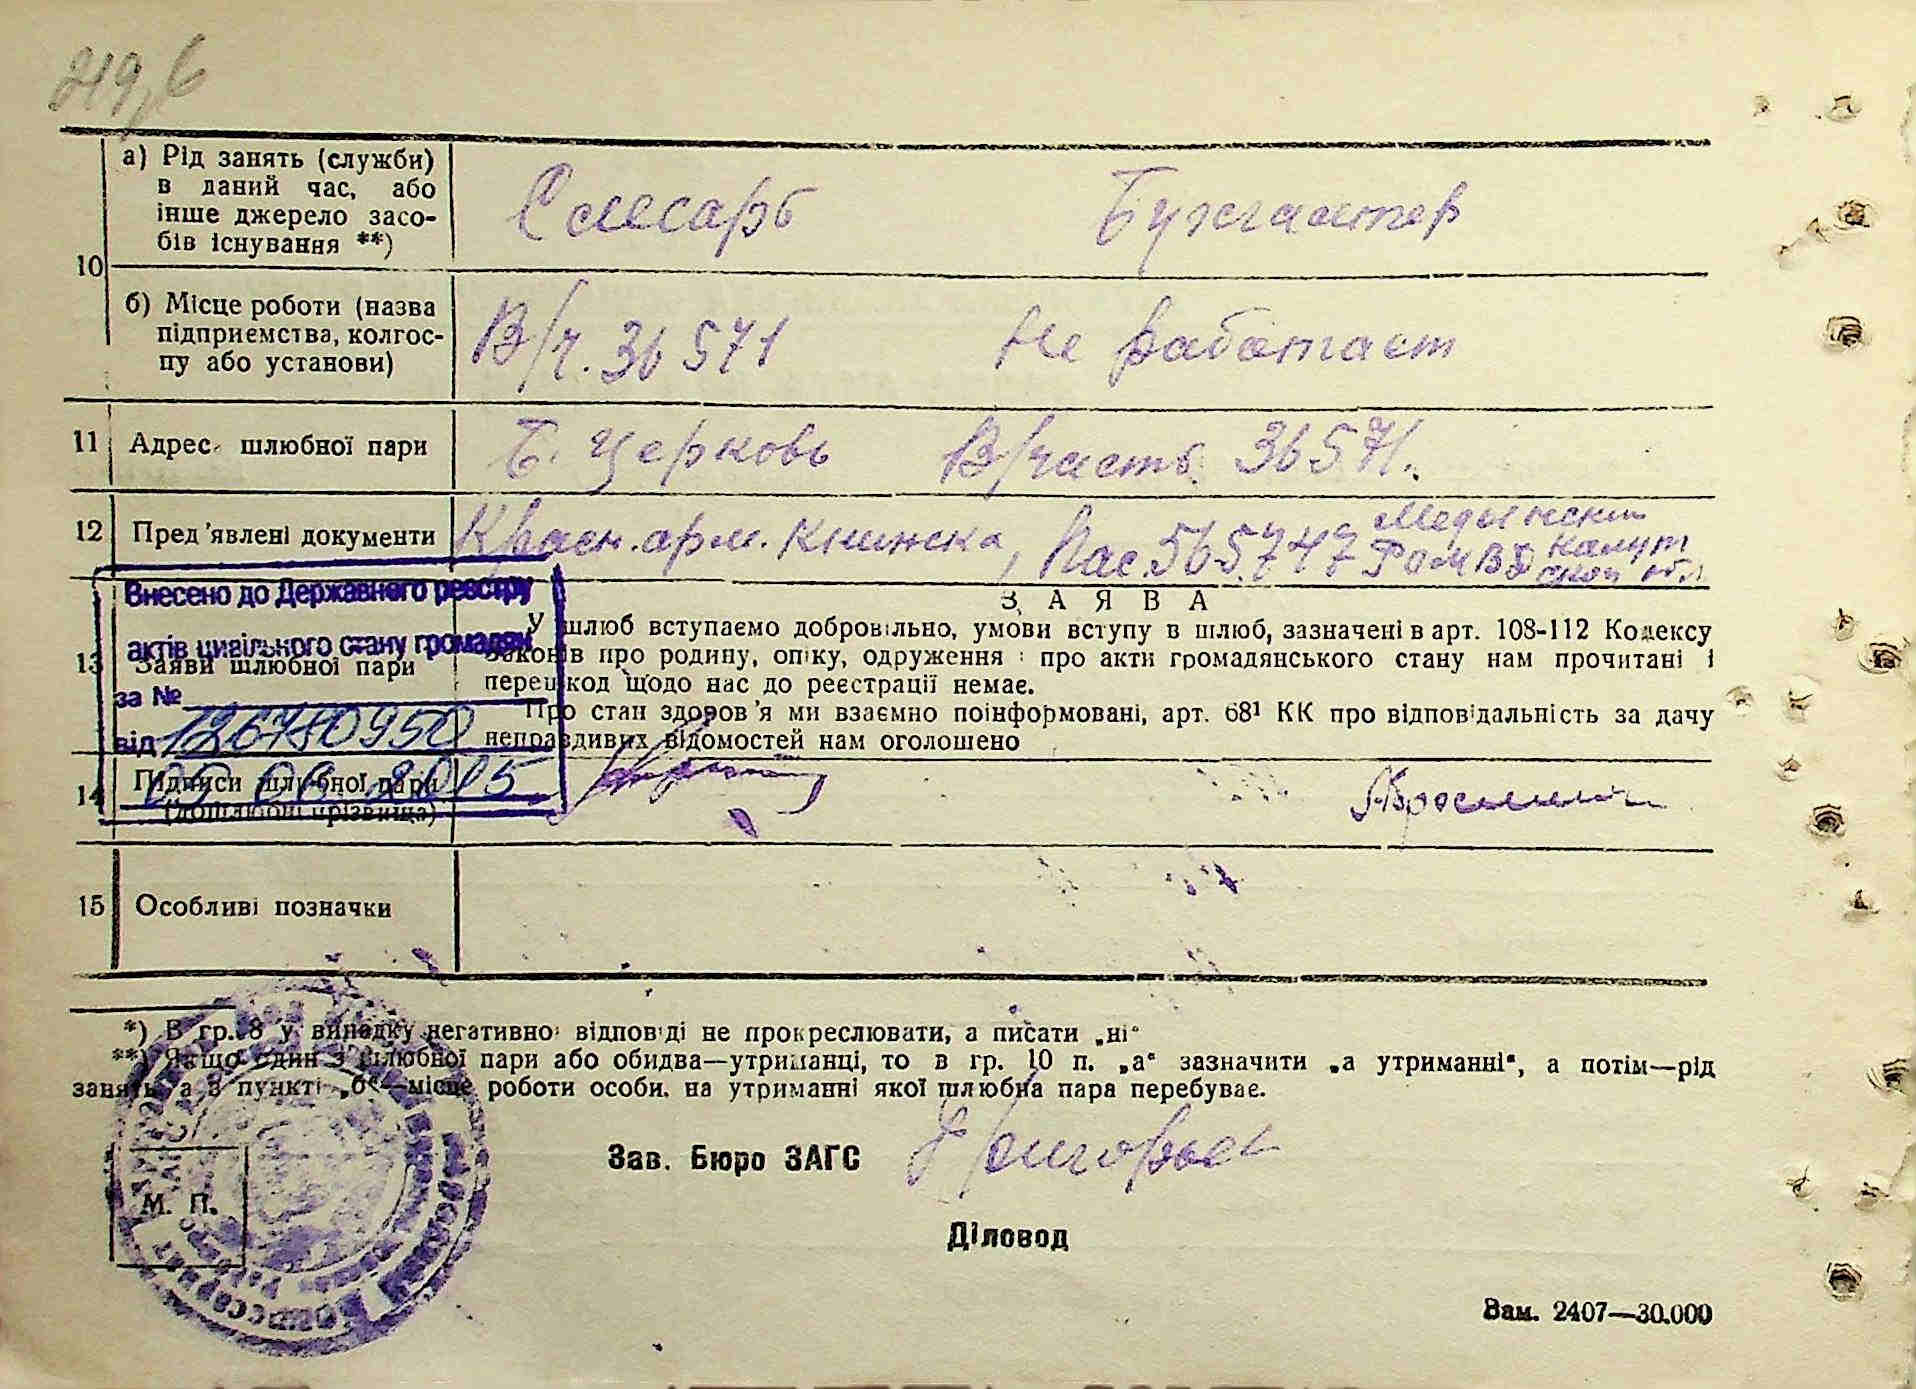 219,6
а) Рід занять (служби)
в даний час, або
інше джерело засо-
бів існування **)
Слесарь Бухгалтер
10
б) Місце роботи (назва
підприємства, колгос-
пу або установи)
В/ч. 36571 Не работает
11 Адрес шлюбної пари Б. Церковь В/часть 36571.
12 Пред'явлені документи Красн.арм. книжка, Пас. 565747 Медынский РОМВД Калужской обл
Внесено до Державного реєстру
актів цивільного стану громадян
за №
126780950
від
2015
ЗАЯВА
13 Заяви шлюбної пари
У шлюб вступаємо добровільно, умови вступу в шлюб, зазначені в арт. 108-112 Кодексу
законів про родину, опіку, одруження і про акти громадянського стану нам прочитані і
перешкод щодо нас до реєстрації немає.
Про стан здоров'я ми взаємно поінформовані, арт. 68¹ КК про відповідальність за дачу
неправдивих відомостей нам оголошено
14 Підписи шлюбної пари
(дошлюбні прізвища)
15 Особливі позначки
*) В гр. 8 у випадку негативної відповіді не прокреслювати, а писати „ні“
**) Якщо один з шлюбної пари або обидва—утриманці, то в гр. 10 п. „а“ зазначити „а утриманні“, а потім—рід
занять, а в пункті „б“—місце роботи особи, на утриманні якої шлюбна пара перебуває.
Зав. Бюро ЗАГС
М. П.
Діловод
Зам. 2407—30.000